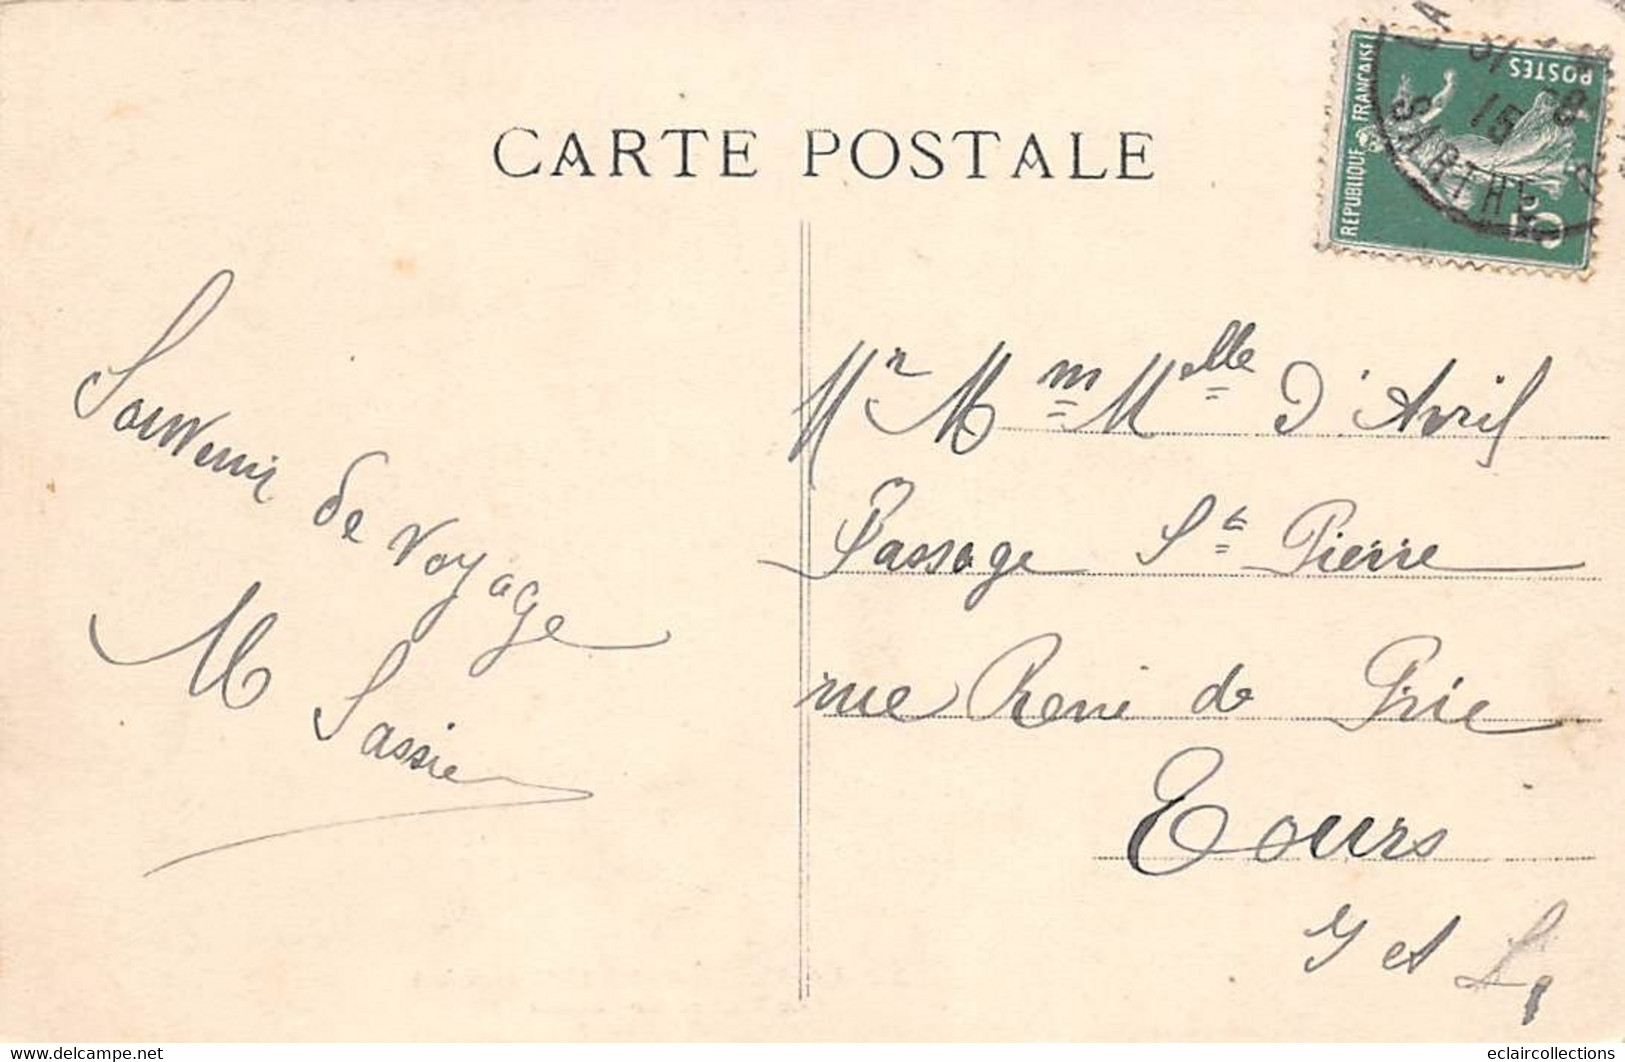 CARTE POSTALE
REPUBLIQUE FRANÇAISE
POSTES
5
15
SARTHE
Souvenir de voyage
M Sassier
Mr Mm Melle D'Avril
Passage St Pierre
rue René de Prie
Tours
I et L
eclaircollections